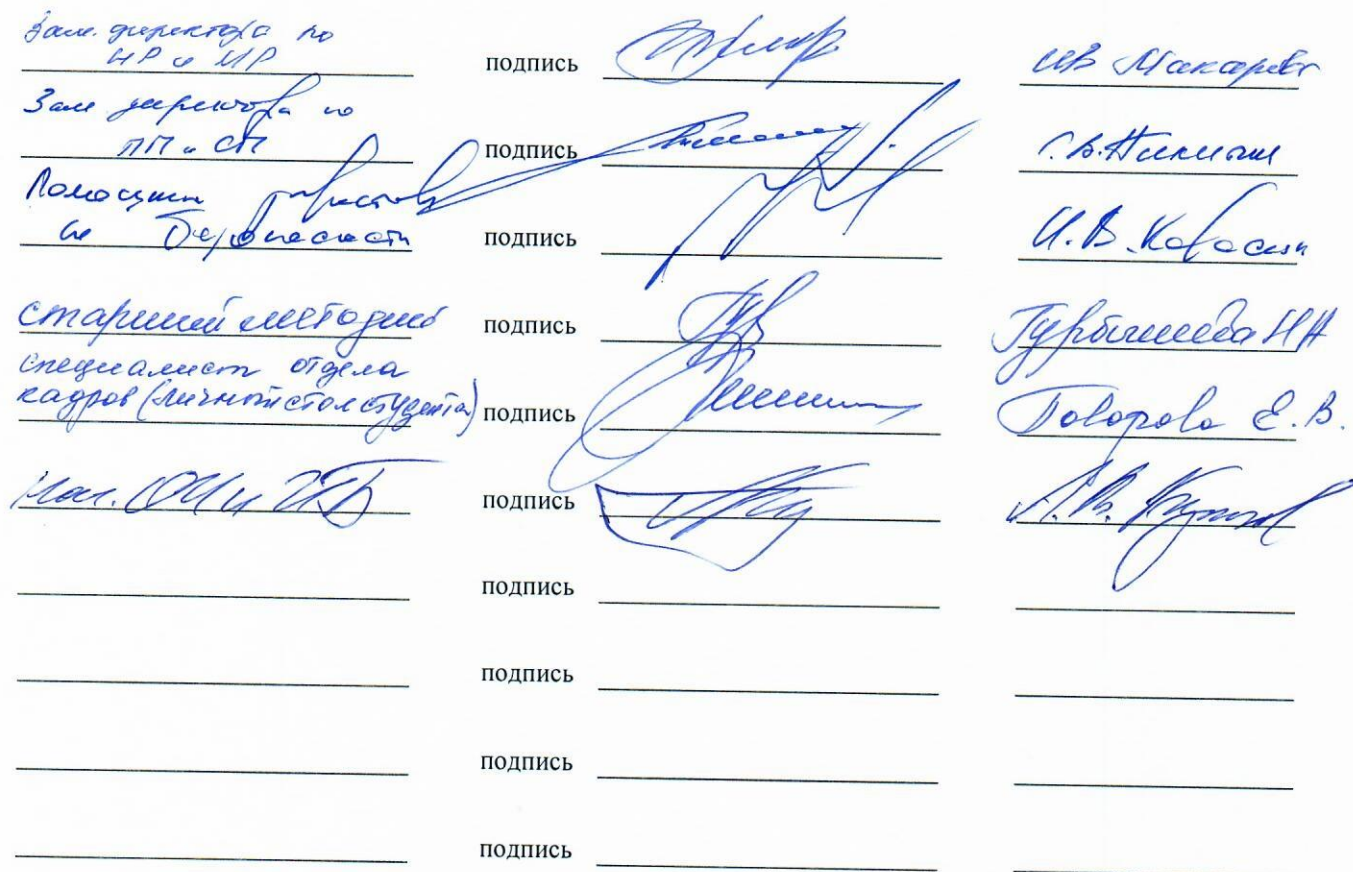 Зам. директора по
НР и МР подпись ИВ Макарова
Зам директора по
ПП и СП подпись С.В. Никитин
Помощник директора
по безопасности подпись И.В.
старший методист подпись НН
специалист отдела
кадров (личный стол студента) подпись Поворова Е.В.
Нач. подпись А.В.
подпись
подпись
подпись
подпись